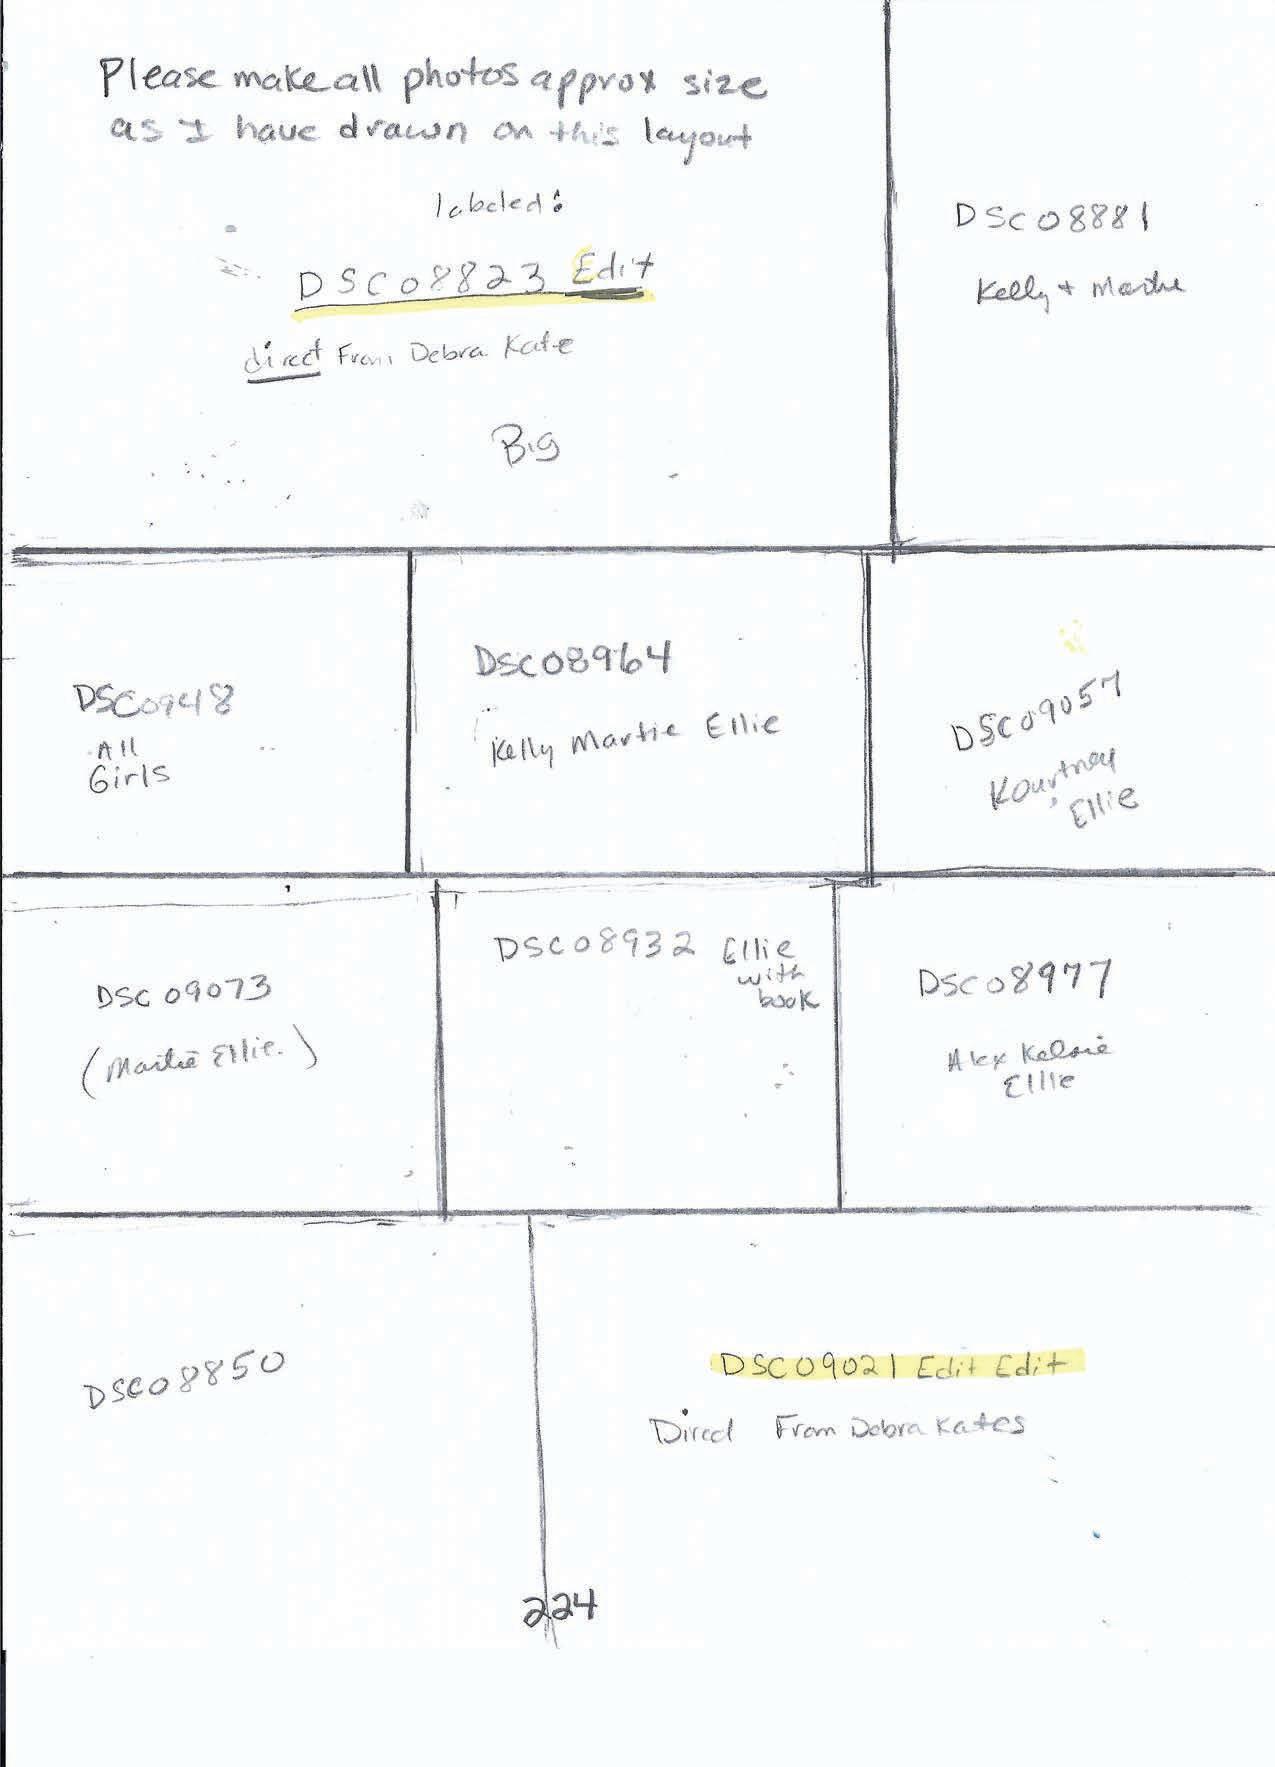 Please make all photos approx size
as I have drawn on this layout
labeled:
DSC08823 Edit
direct From Debra Kate
Big
DSC08881
Kelly + Martie
DSC0948
All
Girls
DSC08964
Kelly Martie Ellie
DSC09057
Kourtney
Ellie
DSC09073
(Martie Ellie.)
DSC08932 Ellie
with
book
DSC08977
Alex Kelsie
Ellie
DSC08850
DSC09021 Edit Edit
Direct From Debra Kates
224